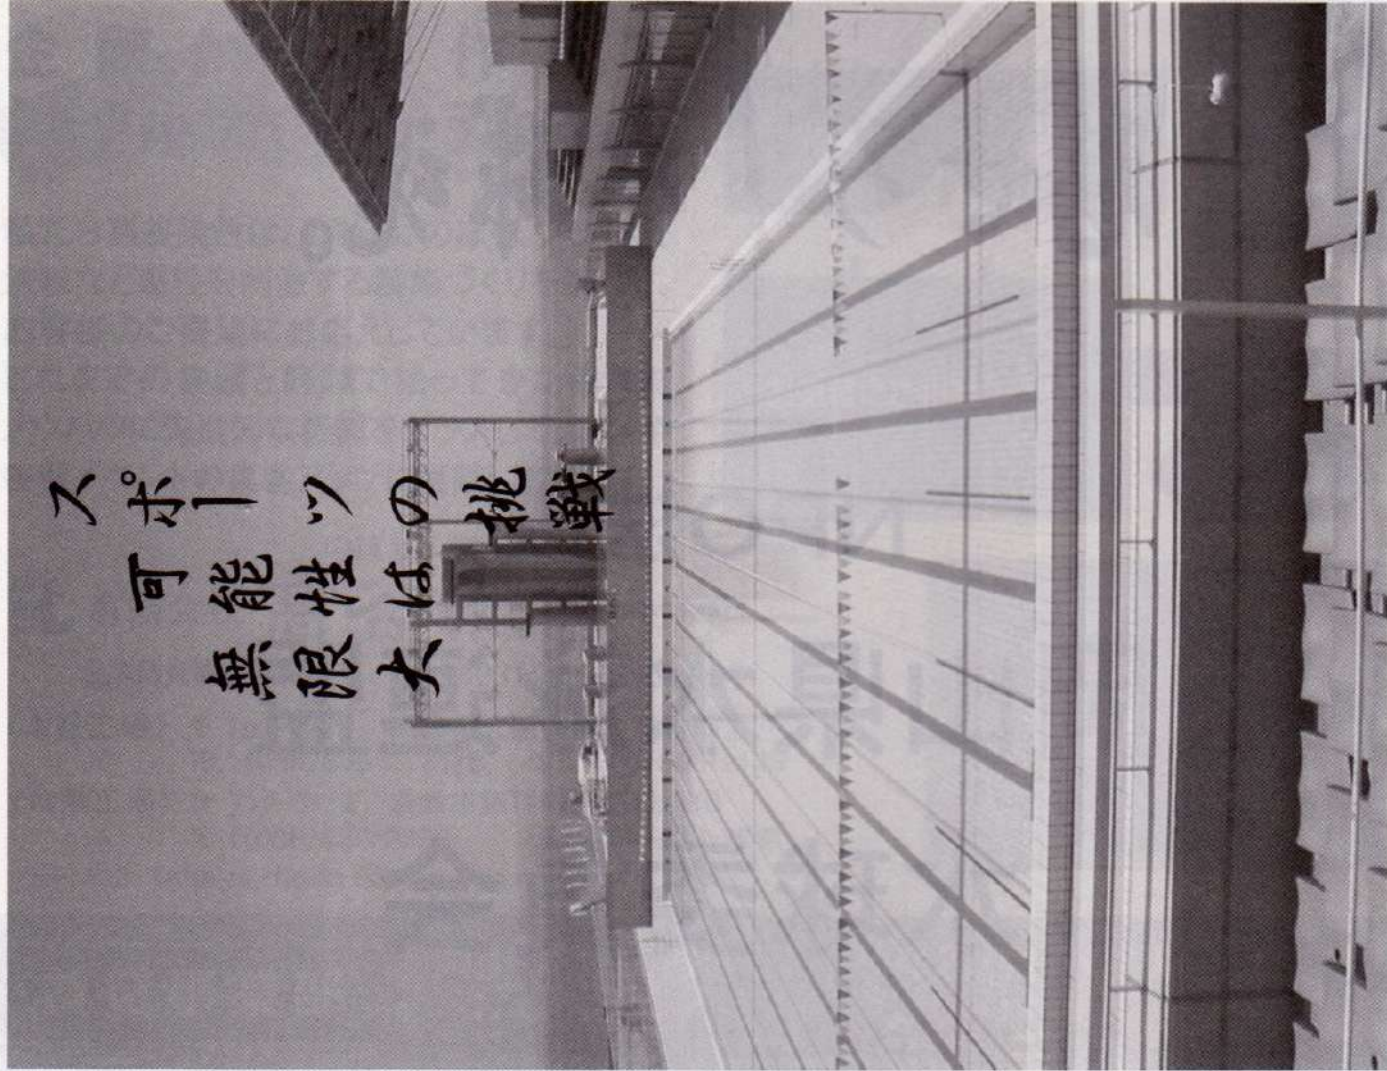 スポーツの挑戦
可能性は
無限大